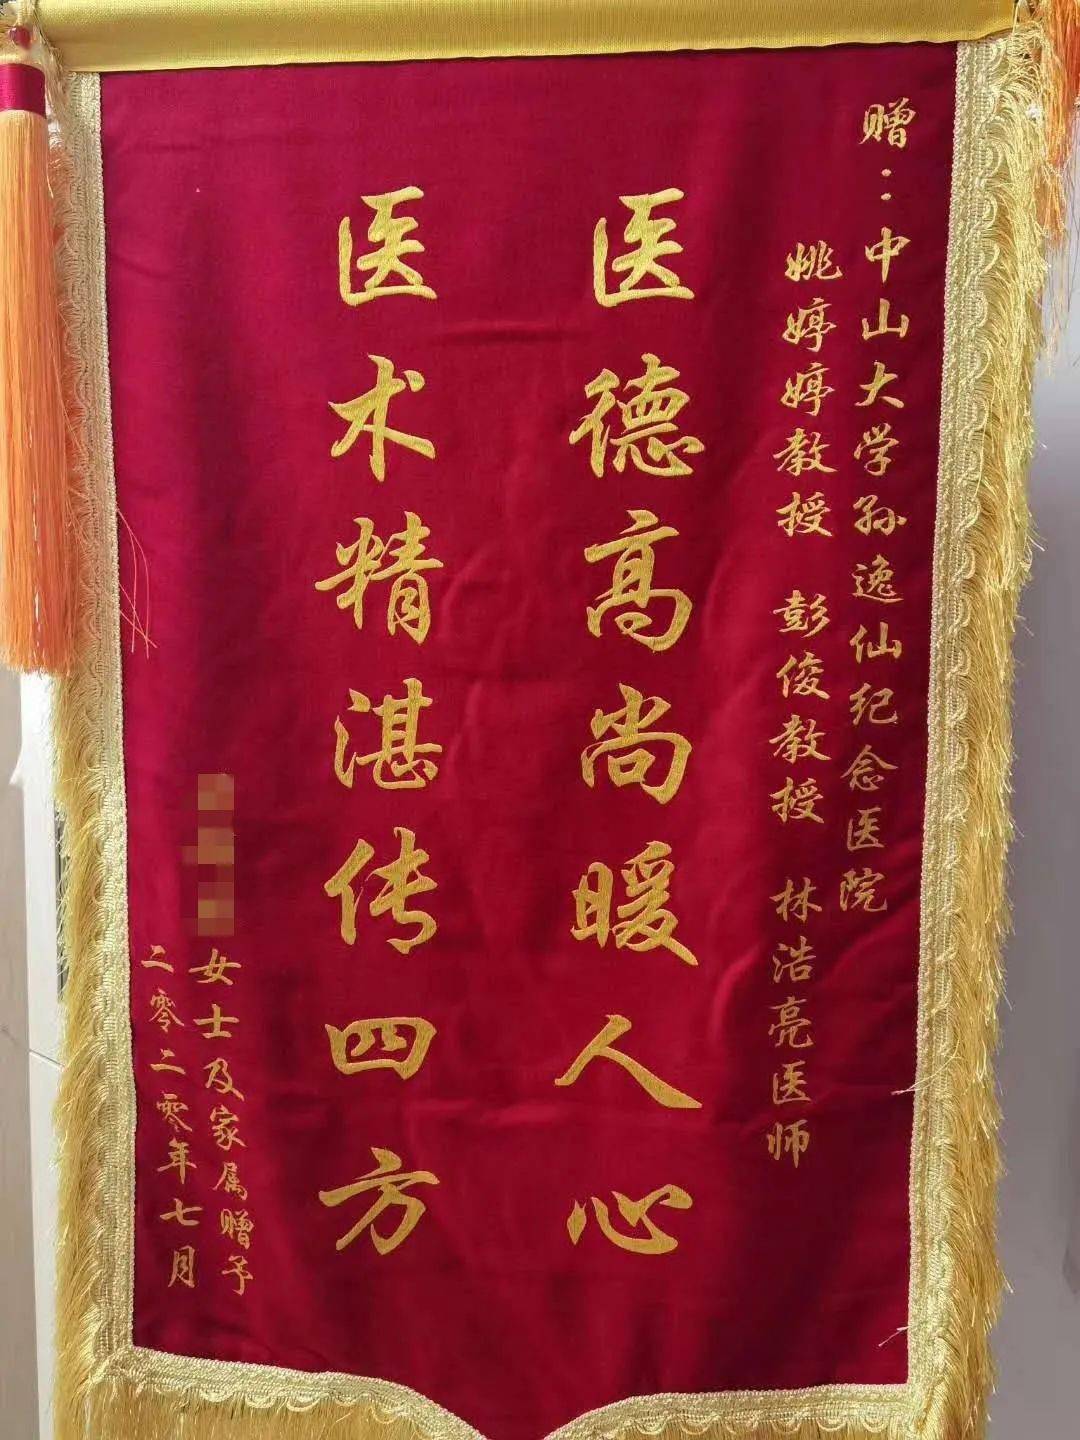 赠：中山大学孙逸仙纪念医院
姚婷婷教授 彭俊教授 林浩亮医师
医德高尚暖人心
医术精湛传四方
女士及家属赠予
二零二零年七月